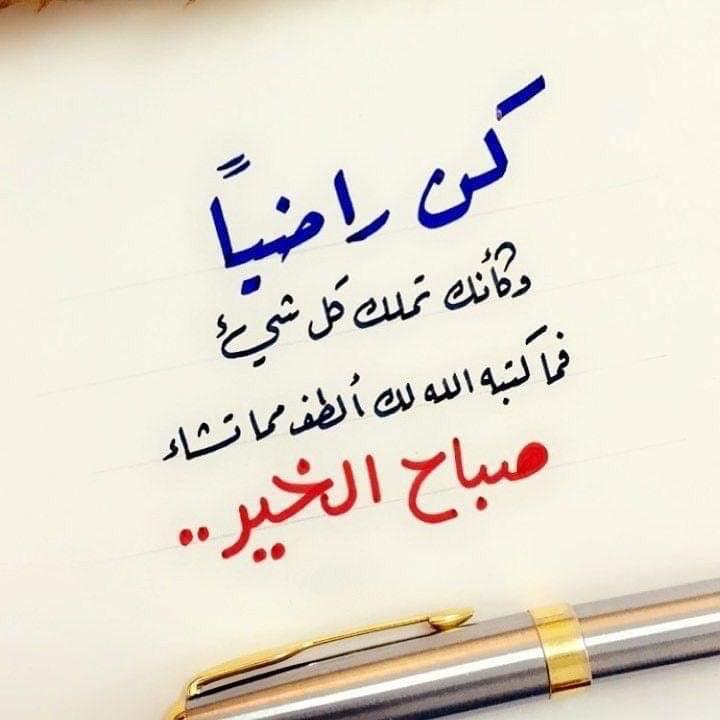 كن راضياً
وكأنك تملك كل شيء
فما كتبه الله لك ألطف مما تشاء
صباح الخير..